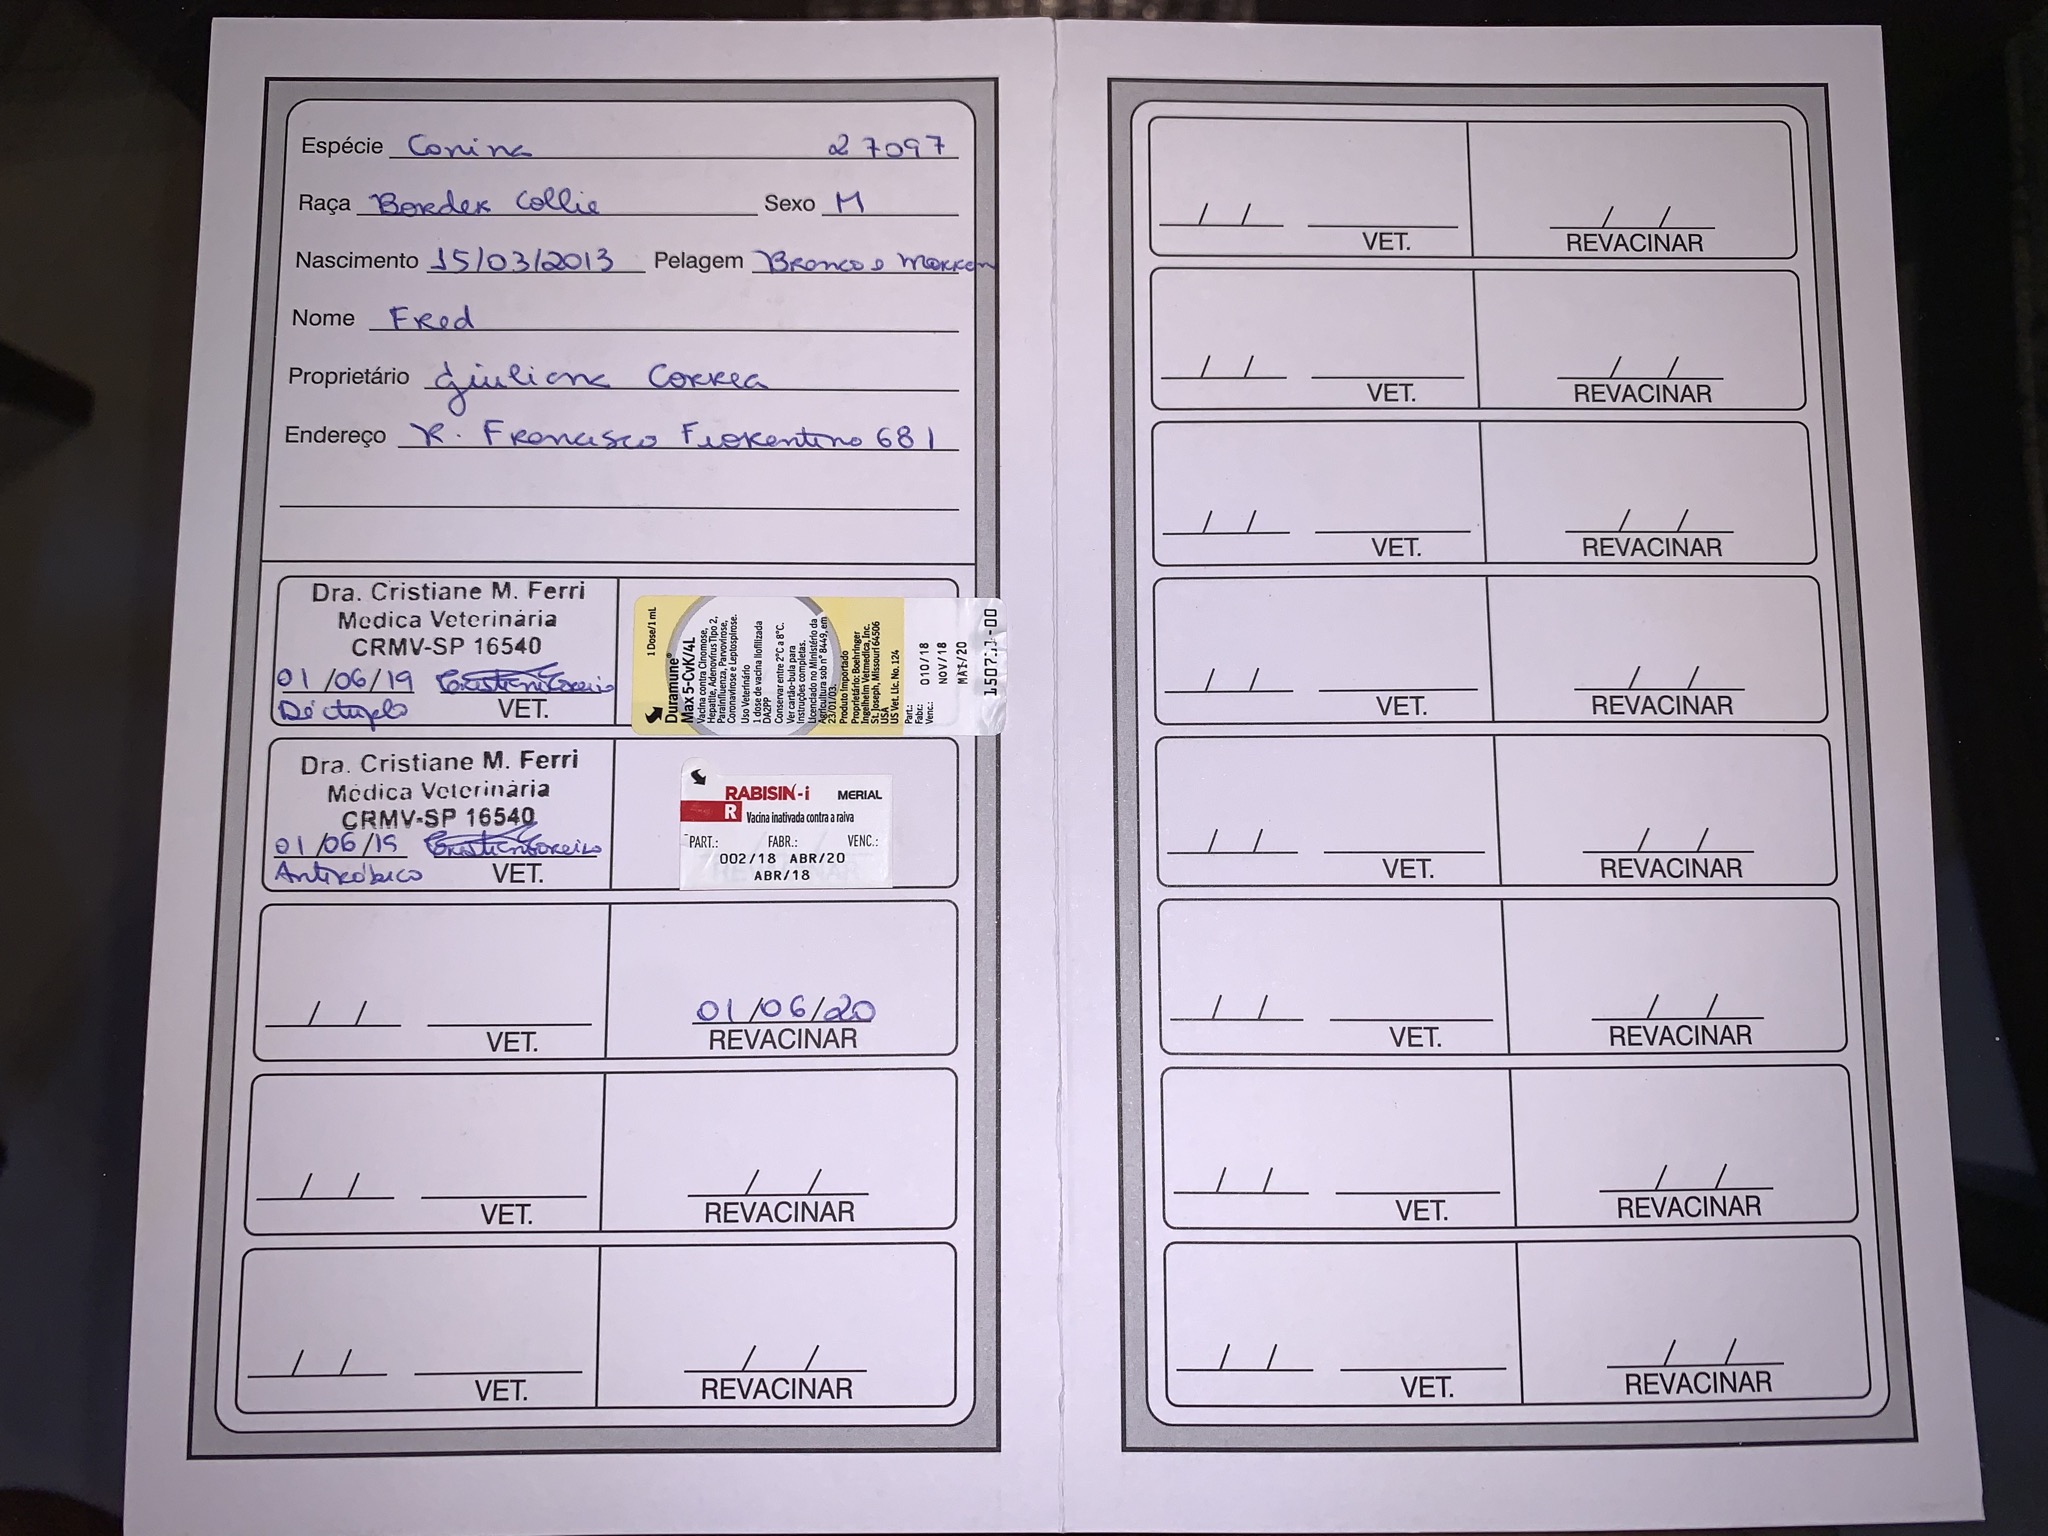 Espécie Canina 27097
Raça Border Collie Sexo M
Nascimento 15/03/2013 Pelagem Branco e Marrom
Nome Fred
Proprietário Giuliana Correa
Endereço R. Francisco Fiorentino 681
Dra. Cristiane M. Ferri
Médica Veterinária
CRMV-SP 16540
01/06/19
Déctupla VET.
1 Dose/1 mL
Duramune®
Max 5-CvK/4L
Vacina contra Cinomose,
Hepatite, Adenovírus Tipo 2,
Parainfluenza, Parvovirose,
Coronavirose e Leptospirose.
Uso Veterinário
1 dose de vacina liofilizada
DA2PP
Conservar entre 2°C a 8°C.
Ver cartão-bula para
instruções completas.
Licenciado no Ministério da
Agricultura sob nº 8449, em
23/01/03.
Produto Importado
Proprietário: Boehringer
Ingelheim Vetmedica, Inc.
St. Joseph, Missouri 64506
USA
US Vet. Lic. No. 124
Part.: 010/18
Fabr.: NOV/18
Venc.: MAI/20
Dra. Cristiane M. Ferri
Médica Veterinária
CRMV-SP 16540
01/06/19
Antirrábica VET.
RABISIN-i MERIAL
R Vacina inativada contra a raiva
PART.: FABR.: VENC.:
002/18 ABR/20
ABR/18
/ / VET. 01/06/20
REVACINAR
/ / VET. / / REVACINAR
/ / VET. / / REVACINAR
/ / VET. / / REVACINAR
/ / VET. / / REVACINAR
/ / VET. / / REVACINAR
/ / VET. / / REVACINAR
/ / VET. / / REVACINAR
/ / VET. / / REVACINAR
/ / VET. / / REVACINAR
/ / VET. / / REVACINAR